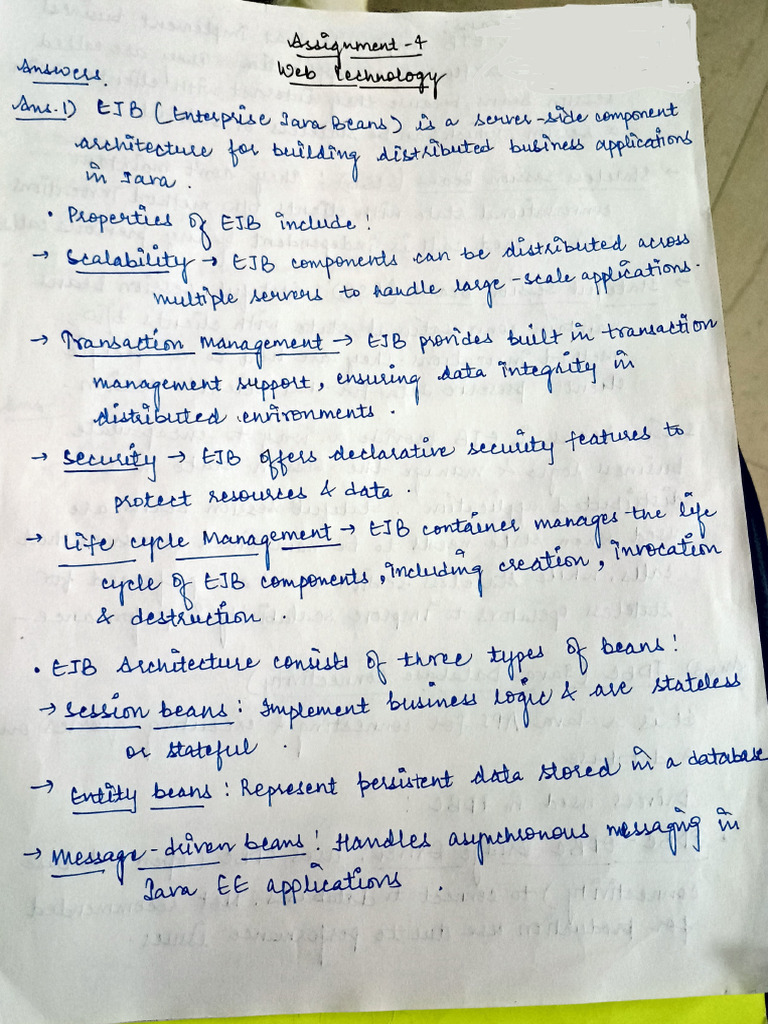 Assignment-4
Answers.
Web Technology
Ans.1) EJB (Enterprise Java Beans) is a server-side component
architecture for building distributed business applications
in Java.
• Properties of EJB include:
→ Scalability → EJB components can be distributed across
multiple servers to handle large-scale applications.
→ Transaction Management → EJB provides built in transaction
management support, ensuring data integrity in
distributed environments.
→ Security → EJB offers declarative security features to
protect resources & data.
→ Life cycle Management → EJB container manages the life
cycle of EJB components, including creation, invocation
& destruction.
• EJB Architecture consists of three types of beans:
→ Session beans: Implement business logic & are stateless
or stateful.
→ Entity beans: Represent persistent data stored in a database
→ Message-driven beans: Handles asynchronous messaging in
Java EE applications.